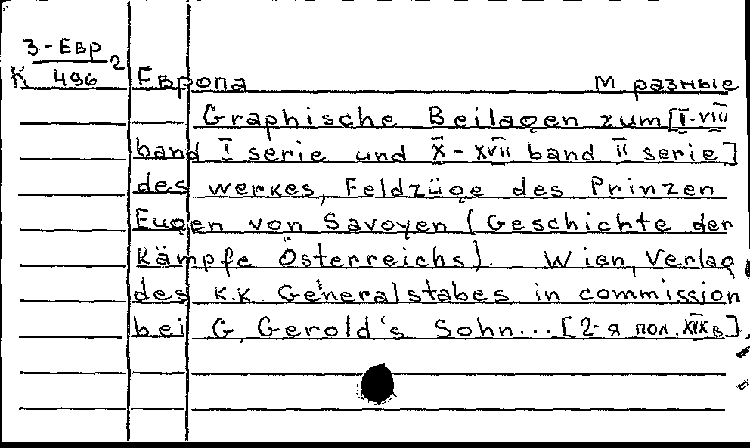 3-Евр 2
К 496 Европа М разные
Graphische Beilagen zum [I-VIII
band I serie und X-XVII band II serie]
des werkes, Feldzüge des Prinzen
Eugen von Savoyen (Geschichte der
Kämpfe Österreichs). Wien, Verlag
des K.K. Generalstabes in commission
bei G. Gerold's Sohn... [2-я пол. XIX в.],